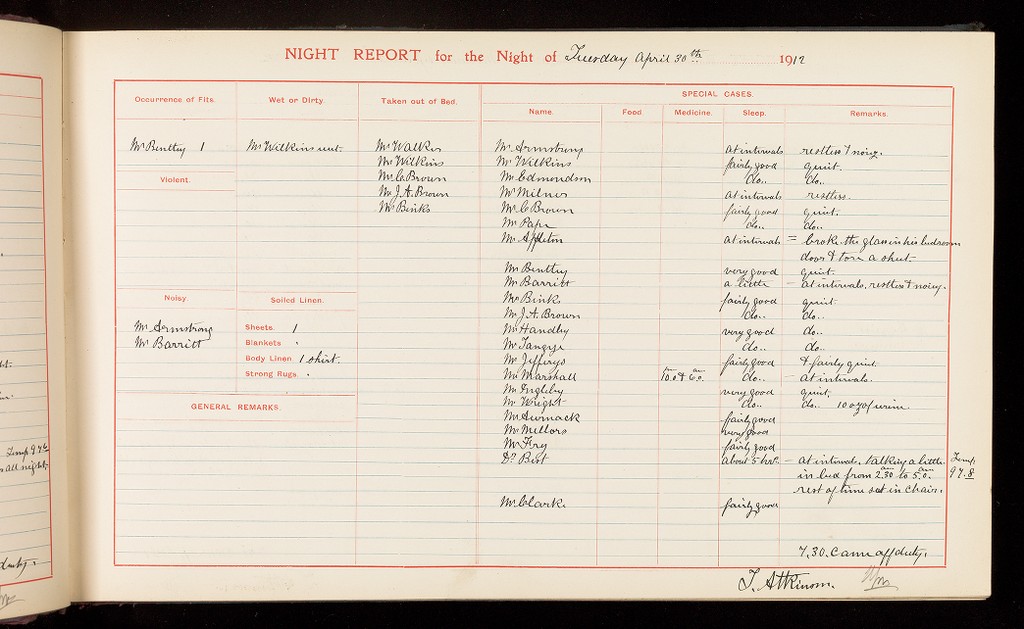 NIGHT REPORT for the Night of Tuesday April 30th 1912
Occurrence of Fits. Wet or Dirty. Taken out of Bed. SPECIAL CASES.
Name. Food Medicine. Sleep. Remarks.
Mr Bentley 1 Mr Wilkins wet. Mr Walker Mr Armstrong at intervals restless & noisy.
Mr Wilkins Mr Wilkins fairly good quiet.
Violent. Mr C. Brown Mr Edmondson do.. do..
Mr J. A. Brown Mr Milner at intervals restless.
Mr Binks Mr C Brown fairly good quiet.
Mr Pape do.. do..
Mr Appleton at intervals = broke the glass in his bedroom
door & tore a sheet.
Mr Bentley very good quiet.
Mr Barritt a little - at intervals, restless & noisy.
Noisy. Soiled Linen. Mr Binks fairly good quiet.
Mr J. A. Brown do.. do..
Mr Armstrong Sheets. 1 Mr Handby very good do..
Mr Barritt Blankets Mr Tangye do.. do..
Body Linen 1 shirt. Mr Jefferys fairly good & fairly quiet.
Strong Rugs. Mr Marshall 10.0 pm & 6.0 am do.. - at intervals.
Mr Ingleby very good quiet.
GENERAL REMARKS. Mr Wright do.. do.. 10 oz of urine
Mr fairly good
Mr Mellors very good
Mr Fry fairly good
Dr about 5 hrs. - at intervals, talking a little Temp.
in bed from 2.30 am to 5.0 am 97.8
rest of time sat in chair.
Mr Clark. fairly good
7.30. Came off duty.
T. Atkinson.
Temp 97.6
all night.
duty.